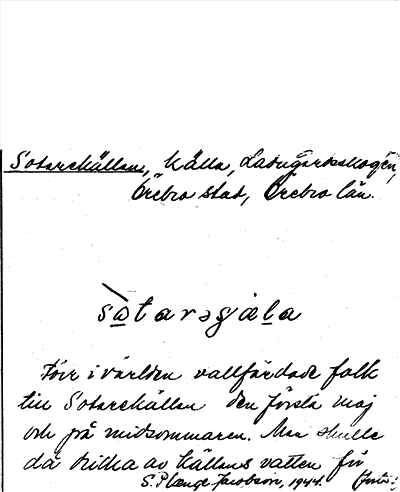 Sotarekällan, källa, Ladugårdsskogen,
Örebro stad, Örebro län.
sòtarəgjäla
Förr i världen vallfärdade folk
till Sotarekällan den första maj
och på midsommaren. Man skulle
då dricka av källans vatten för
S. Plænge Jacobson, 1944. (forts.)